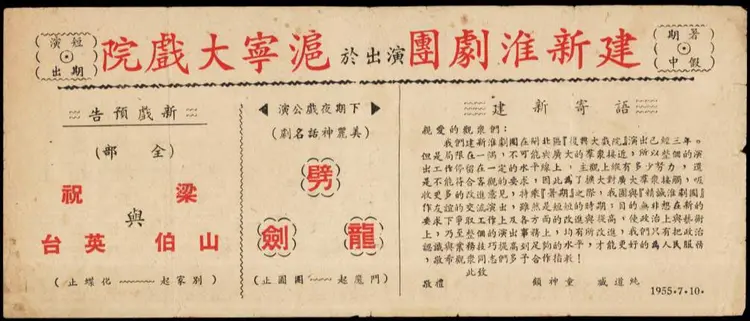 暑假期中
建新淮劇團演出於滬寧大戲院
短期演出
建新寄語
親愛的觀衆們：
我們建新淮劇團在閘北區『復興大戲院』演出已經三年。
但是局限在一隅，不可能與廣大的羣衆接近，所以整個的演
出工作停留在一定的水平線上，主觀上縱有多少努力，還
是不能符合客觀的要求，因此爲了擴大對廣大羣衆接觸，吸
收更多的改進意見，特乘『暑期』之際，我團與『精誠淮劇團』
作友誼的交流演出，雖然是短短的時期；目的無非想在新的
要求下爭取工作上及各方面的改進與提高，使政治上與藝術
上，乃至整個的演出事務上，均有所改進，我們只有把政治
認識與業務技巧提高到足夠的水平，才能更好的爲人民服務
，敬希觀衆同志們多予合作指教！
此致
敬禮 神童 臧道純
1955·7·10·
下期夜戲公演
（美麗神話名劇）
劈龍劍
（鬥魔起——團圓止）
新戲預告
（全部）
梁山伯與祝英台
（別家起——化蝶止）